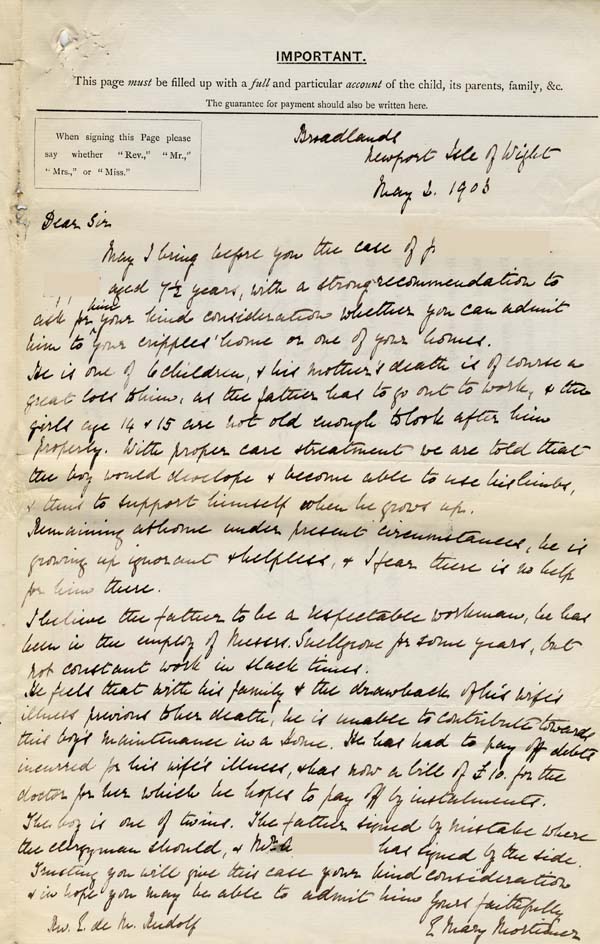 IMPORTANT.
This page must be filled up with a full and particular account of the child, its parents, family, &c.
The guarantee for payment should also be written here.
When signing this Page please
say whether "Rev.," "Mr.,"
"Mrs.," or "Miss."
Broadlands
Newport Isle of Wight
May 2. 1903
Dear Sir
May I bring before you the case of J
aged 7½ years, with a strong recommendation to
ask for him your kind consideration whether you can admit
him to your cripples' home or one of your homes.
He is one of 6 children, & his mother's death is of course a
great loss to him, as the father has to go out to work, & the
girls age 14 & 15 are not old enough to look after him
properly. With proper care & treatment we are told that
the boy would develope & become able to use his limbs,
& thus to support himself when he grows up.
Remaining at home under present circumstances, he is
growing up ignorant & helpless, & I fear there is no help
for him there.
I believe the father to be a respectable workman, he has
been in the employ of Messrs. Snellgrove for some years, but
not constant work in slack times.
He feels that with his family & the drawback of his wife's
illness previous to her death, he is unable to contribute towards
this boy's maintenance in a Home. He has had to pay off debts
incurred for his wife's illness, & has now a bill of £10. for the
doctor for her which he hopes to pay off by instalments.
The boy is one of twins. The father signed by mistake where
the clergyman should, & has signed by the side.
Trusting you will give this case your kind consideration
& in hope you may be able to admit him Yours faithfully
Rev. E. de M. Rudolf E Mary Mortimer